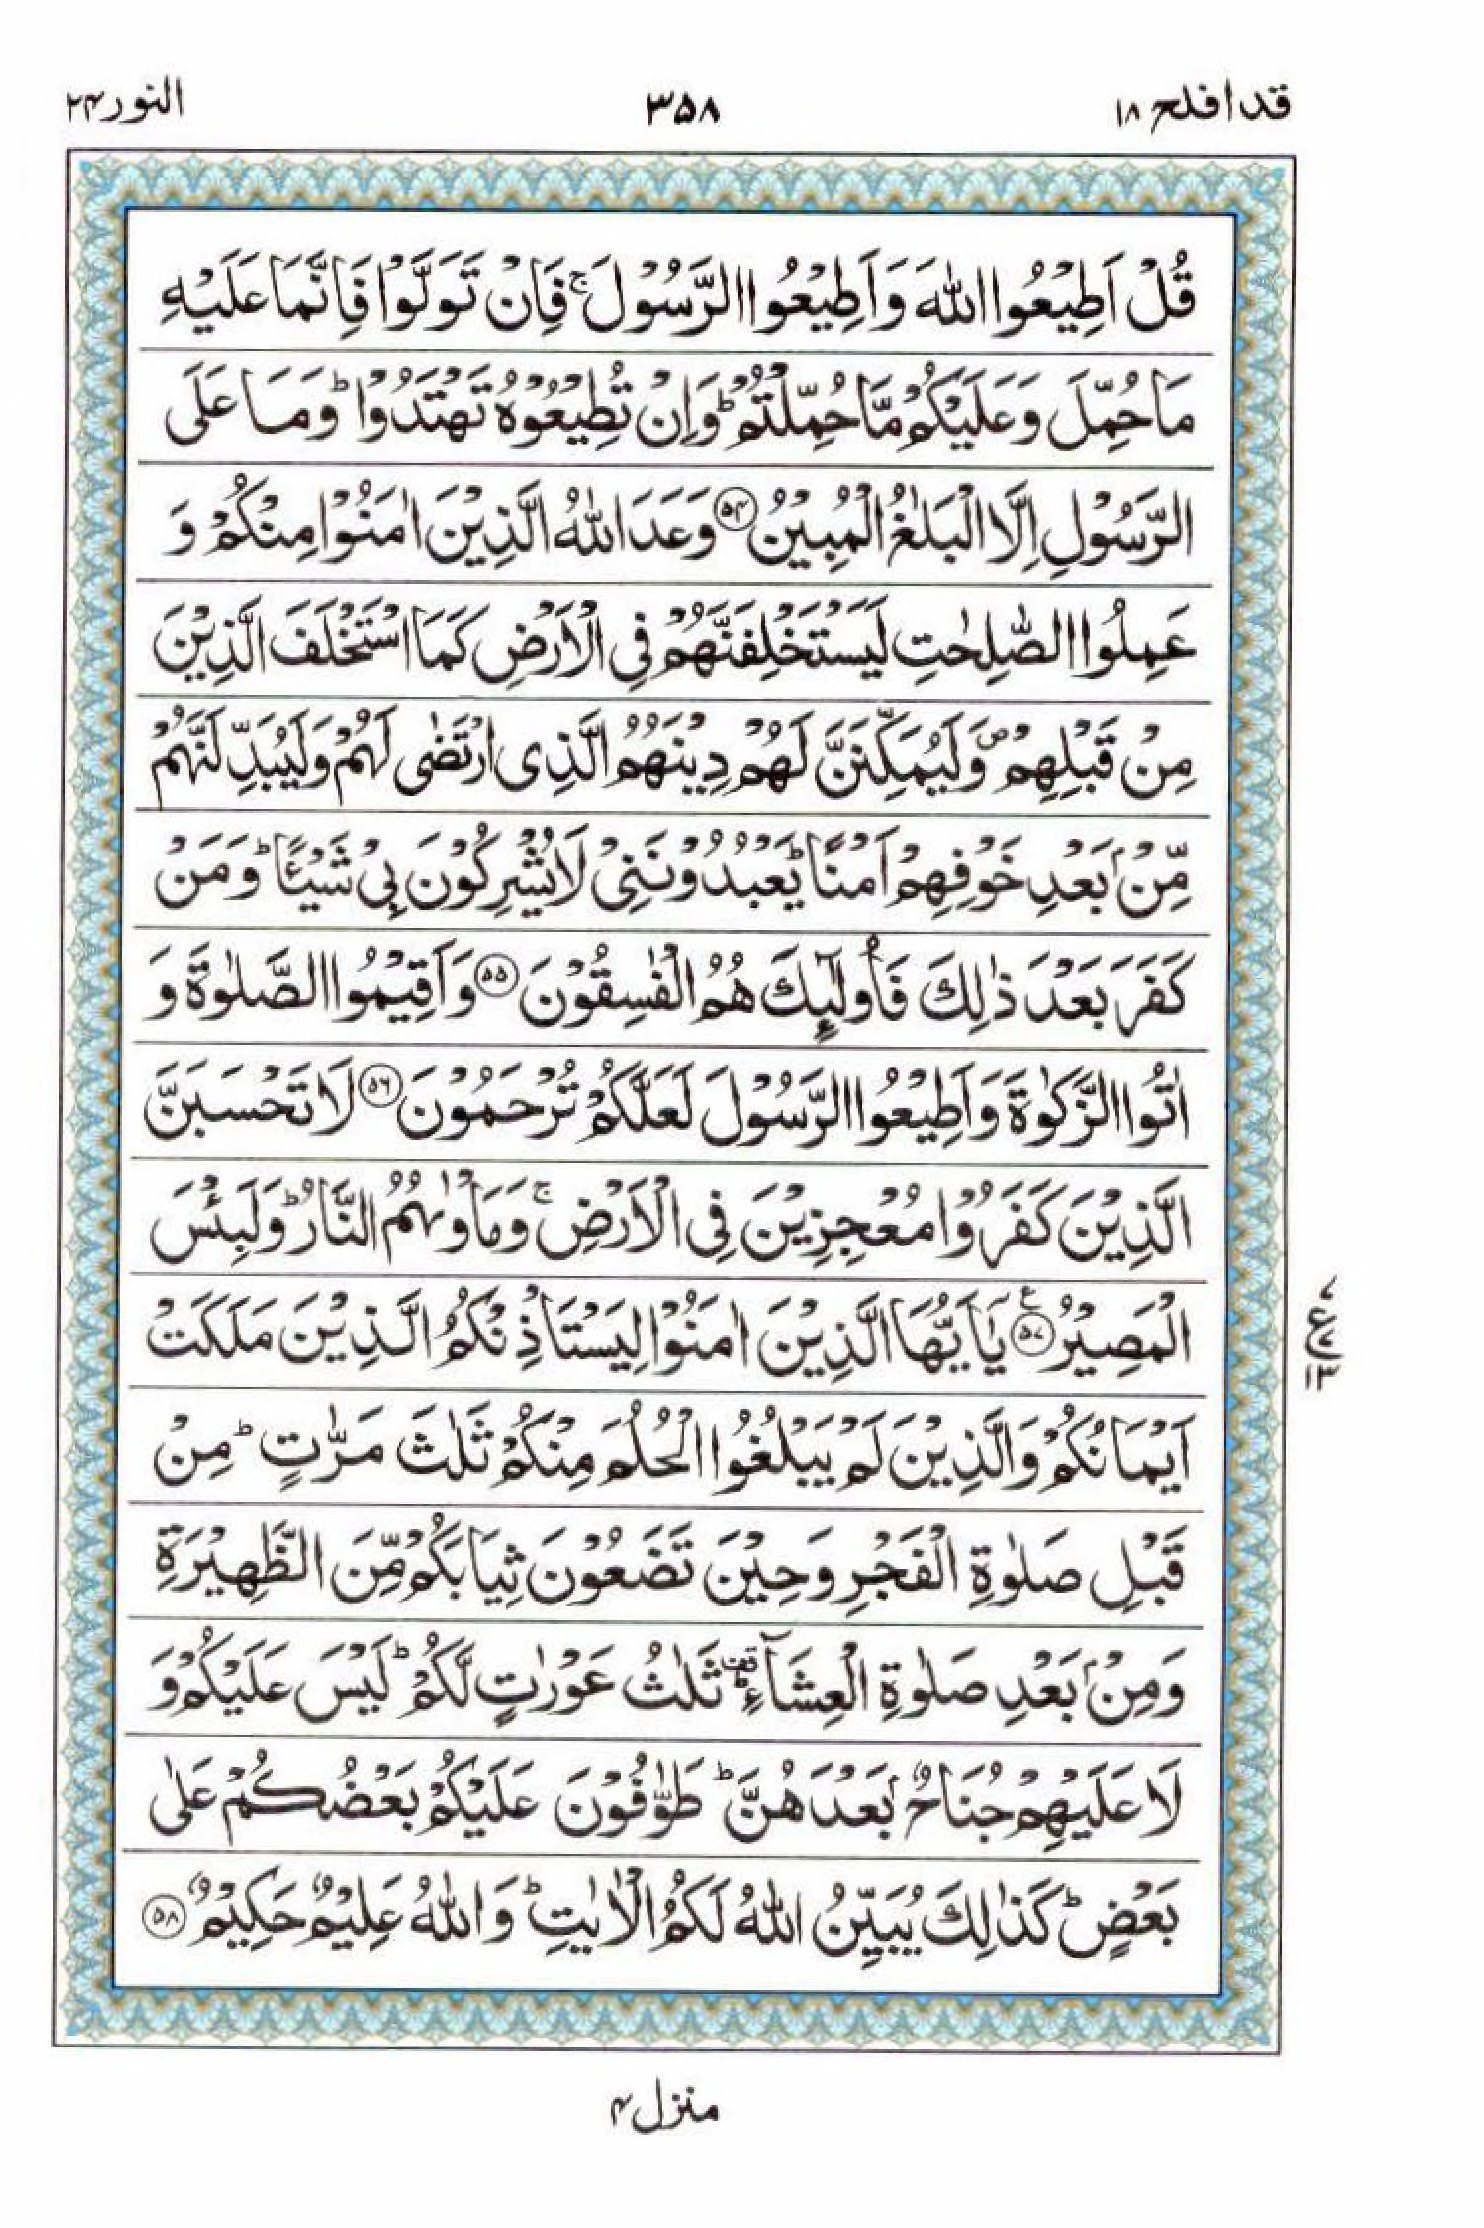 قد افلح ١٨
٣٥٨
النور ٢٤
قُلْ اَطِيْعُوا اللّٰهَ وَاَطِيْعُوا الرَّسُوْلَ ۚ فَاِنْ تَوَلَّوْا فَاِنَّمَا عَلَيْهِ
مَا حُمِّلَ وَعَلَيْكُمْ مَّا حُمِّلْتُمْ ؕ وَاِنْ تُطِيْعُوْهُ تَهْتَدُوْا ؕ وَمَا عَلَى
الرَّسُوْلِ اِلَّا الْبَلٰغُ الْمُبِيْنُ ۝٥٤ وَعَدَ اللّٰهُ الَّذِيْنَ اٰمَنُوْا مِنْكُمْ وَ
عَمِلُوا الصّٰلِحٰتِ لَيَسْتَخْلِفَنَّهُمْ فِى الْاَرْضِ كَمَا اسْتَخْلَفَ الَّذِيْنَ
مِنْ قَبْلِهِمْ ۪ وَلَيُمَكِّنَنَّ لَهُمْ دِيْنَهُمُ الَّذِى ارْتَضٰى لَهُمْ وَلَيُبَدِّلَنَّهُمْ
مِّنْۢ بَعْدِ خَوْفِهِمْ اَمْنًا ؕ يَعْبُدُوْنَنِىْ لَا يُشْرِكُوْنَ بِىْ شَيْـًٔا ؕ وَمَنْ
كَفَرَ بَعْدَ ذٰلِكَ فَاُولٰٓئِكَ هُمُ الْفٰسِقُوْنَ ۝٥٥ وَاَقِيْمُوا الصَّلٰوةَ وَ
اٰتُوا الزَّكٰوةَ وَاَطِيْعُوا الرَّسُوْلَ لَعَلَّكُمْ تُرْحَمُوْنَ ۝٥٦ لَا تَحْسَبَنَّ
الَّذِيْنَ كَفَرُوْا مُعْجِزِيْنَ فِى الْاَرْضِ ۚ وَمَاْوٰىهُمُ النَّارُ ؕ وَلَبِئْسَ
الْمَصِيْرُ ۝٥٧ ع يٰۤاَيُّهَا الَّذِيْنَ اٰمَنُوْا لِيَسْتَاْذِنْكُمُ الَّذِيْنَ مَلَكَتْ
ع ٧ ١٣
اَيْمَانُكُمْ وَالَّذِيْنَ لَمْ يَبْلُغُوا الْحُلُمَ مِنْكُمْ ثَلٰثَ مَرّٰتٍ ؕ مِنْ
قَبْلِ صَلٰوةِ الْفَجْرِ وَحِيْنَ تَضَعُوْنَ ثِيَابَكُمْ مِّنَ الظَّهِيْرَةِ
وَمِنْۢ بَعْدِ صَلٰوةِ الْعِشَآءِ ؕ قف ثَلٰثُ عَوْرٰتٍ لَّكُمْ ؕ لَيْسَ عَلَيْكُمْ وَ
لَا عَلَيْهِمْ جُنَاحٌۢ بَعْدَهُنَّ ؕ طَوّٰفُوْنَ عَلَيْكُمْ بَعْضُكُمْ عَلٰى
بَعْضٍ ؕ كَذٰلِكَ يُبَيِّنُ اللّٰهُ لَكُمُ الْاٰيٰتِ ؕ وَاللّٰهُ عَلِيْمٌ حَكِيْمٌ ۝٥٨
منزل ٤